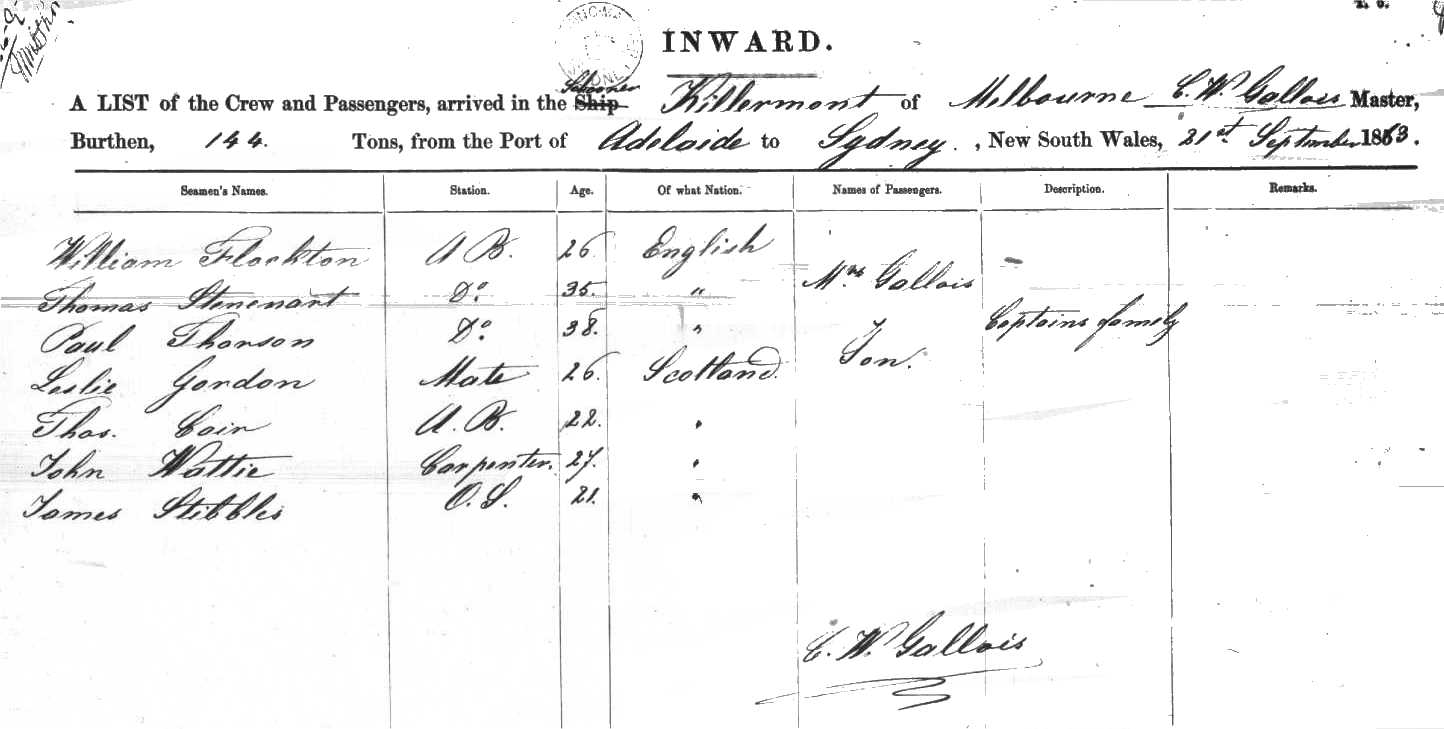 INWARD.
Schooner
A LIST of the Crew and Passengers, arrived in the Ship Killermont of Melbourne C. W. Gallois Master,
Burthen, 144. Tons, from the Port of Adelaide to Sydney. , New South Wales, 21st September 1863.
Seamen's Names. Station. Age. Of what Nation. Names of Passengers. Description. Remarks.
William Flockton A B. 26. English
Mrs Gallois
Thomas Do. 35. "
Captains family
Paul Thorson Do. 38. "
Son.
Leslie Gordon Mate 26. Scotland.
Thos. Coir A. B. 22. "
John Wattie Carpenter. 27. "
James Stibbles O. S. 21. "
C. W. Gallois